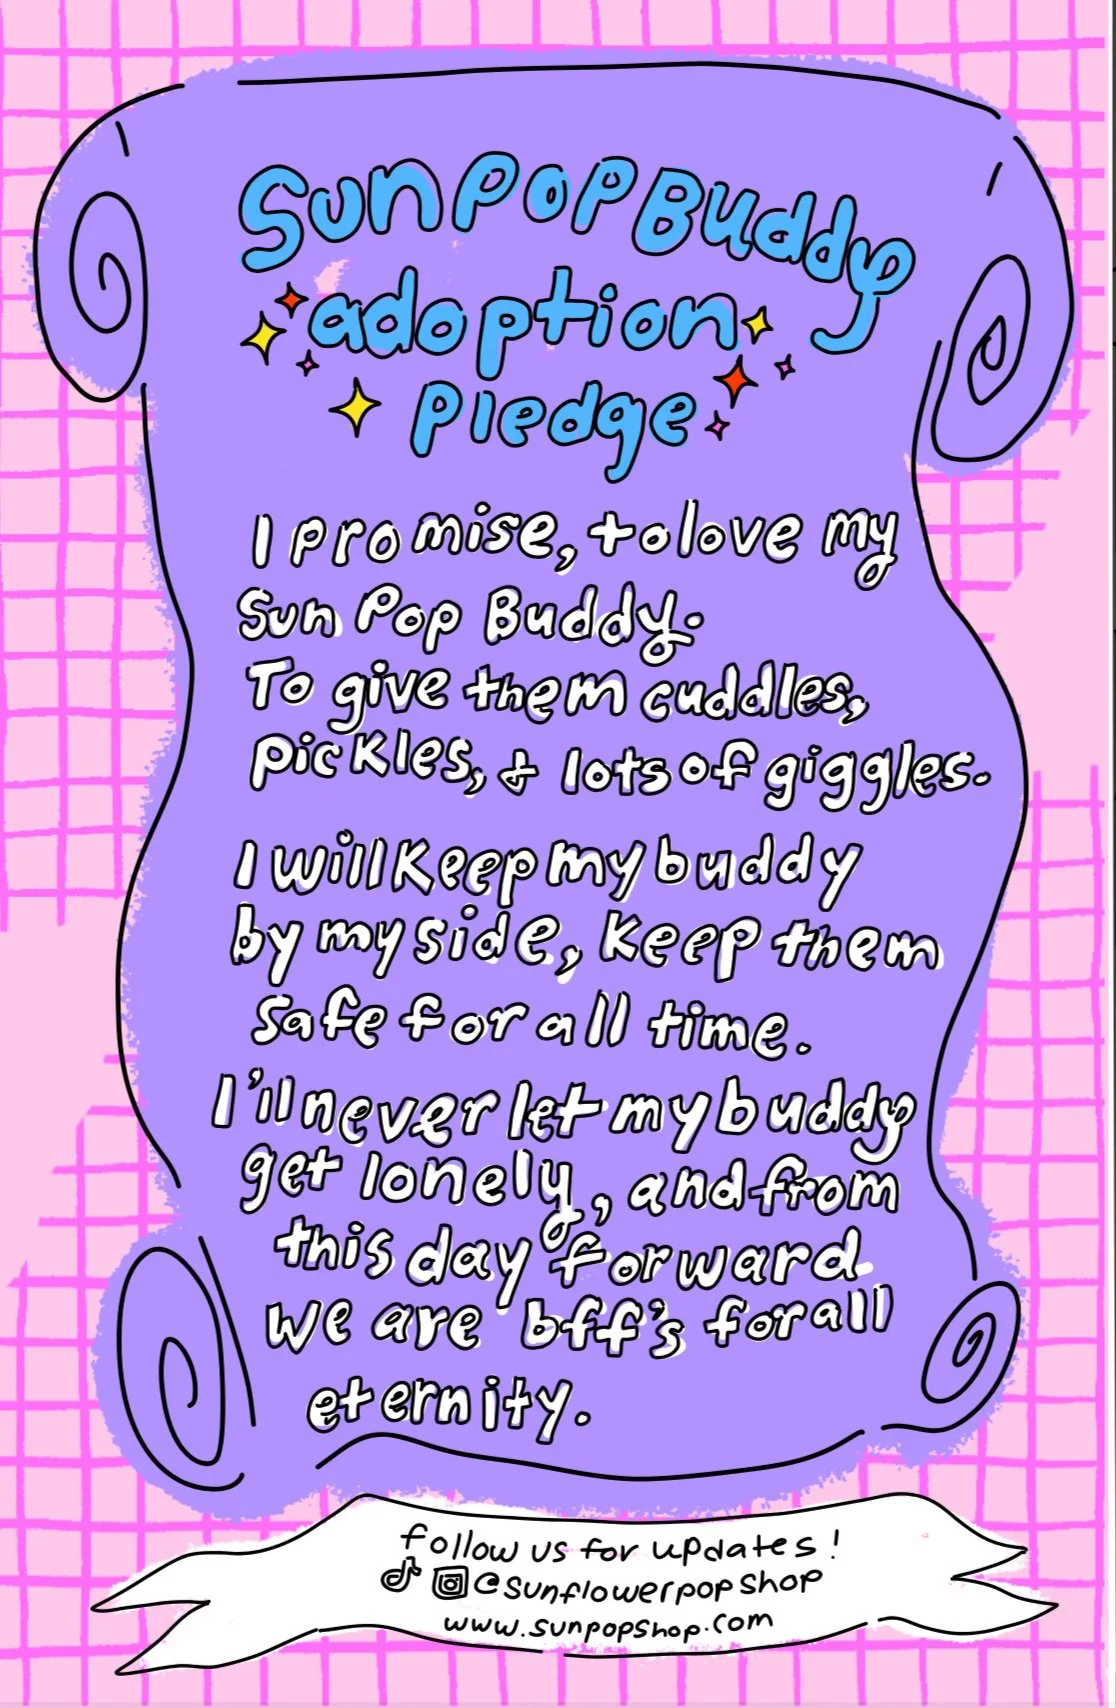 Sun Pop Buddy
adoption
Pledge
I promise, to love my
Sun Pop Buddy.
To give them cuddles,
pickles, & lots of giggles.
I will keep my buddy
by my side, keep them
safe for all time.
I'll never let my buddy
get lonely, and from
this day forward
we are bff's for all
eternity.
follow us for updates!
@sunflowerpopshop
www.sunpopshop.com